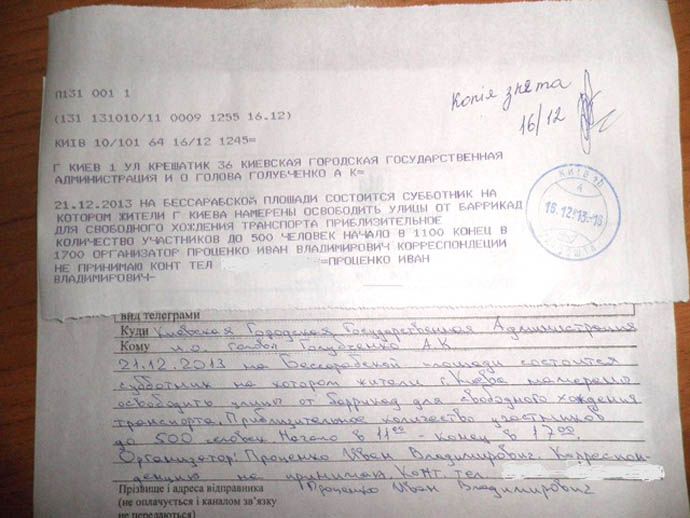 П131 001 1
(131 131010/11 0009 1255 16.12)
КИЇВ 10/101 64 16/12 1245=
Копія знята
16/12
Г КИЕВ 1 УЛ КРЕШАТИК 36 КИЕВСКАЯ ГОРОДСКАЯ ГОСУДАРСТВЕННАЯ
АДМИНИСТРАЦИЯ И О ГОЛОВА ГОЛУБЧЕНКО А К=
21.12.2013 НА БЕССАРАБСКОЙ ПЛОЩАДИ СОСТОИТСЯ СУББОТНИК НА
КОТОРОМ ЖИТЕЛИ Г КИЕВА НАМЕРЕНЫ ОСВОБОДИТЬ УЛИЦЫ ОТ БАРРИКАД
ДЛЯ СВОБОДНОГО ХОЖДЕНИЯ ТРАНСПОРТА ПРИБЛИЗИТЕЛЬНОЕ
КОЛИЧЕСТВО УЧАСТНИКОВ ДО 500 ЧЕЛОВЕК НАЧАЛО В 1100 КОНЕЦ В
1700 ОРГАНИЗАТОР ПРОЦЕНКО ИВАН ВЛАДИМИРОВИЧ КОРРЕСПОНДЕЦИИ
НЕ ПРИНИМАЮ КОНТ ТЕЛ =ПРОЦЕНКО ИВАН
ВЛАДИМИРОВИЧ-
КИЇВ
16.12.13-16
вид телеграми
Куди Киевская Городская Государственная Администрация
Кому и.о. голова Голубченко А.К
21.12.2013 на Бессарабской площади состоится
субботник на котором жители г. Киева намерены
освободить улицы от баррикад для свободного хождения
транспорта. Приблизительное количество участников
до 500 человек. Начало в 11 00 - конец в 17 00.
Организатор: Проценко Иван Владимирович. Корреспон-
денцию не принимаю. Конт. тел.
Прізвище і адреса відправника Проценко Иван Владимирович
(не оплачується і каналом зв'язку
не передаються)